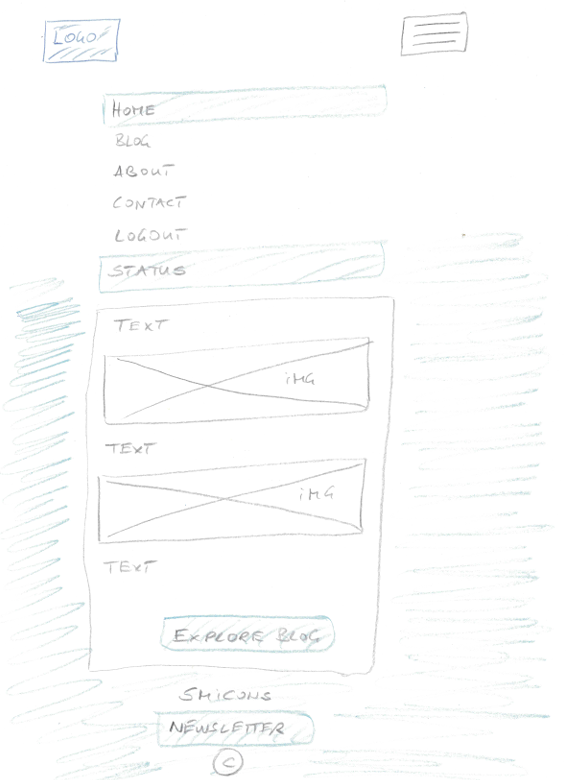 LOGO
HOME
BLOG
ABOUT
CONTACT
LOGOUT
STATUS
TEXT
IMG
TEXT
IMG
TEXT
EXPLORE BLOG
SMICONS
NEWSLETTER
©